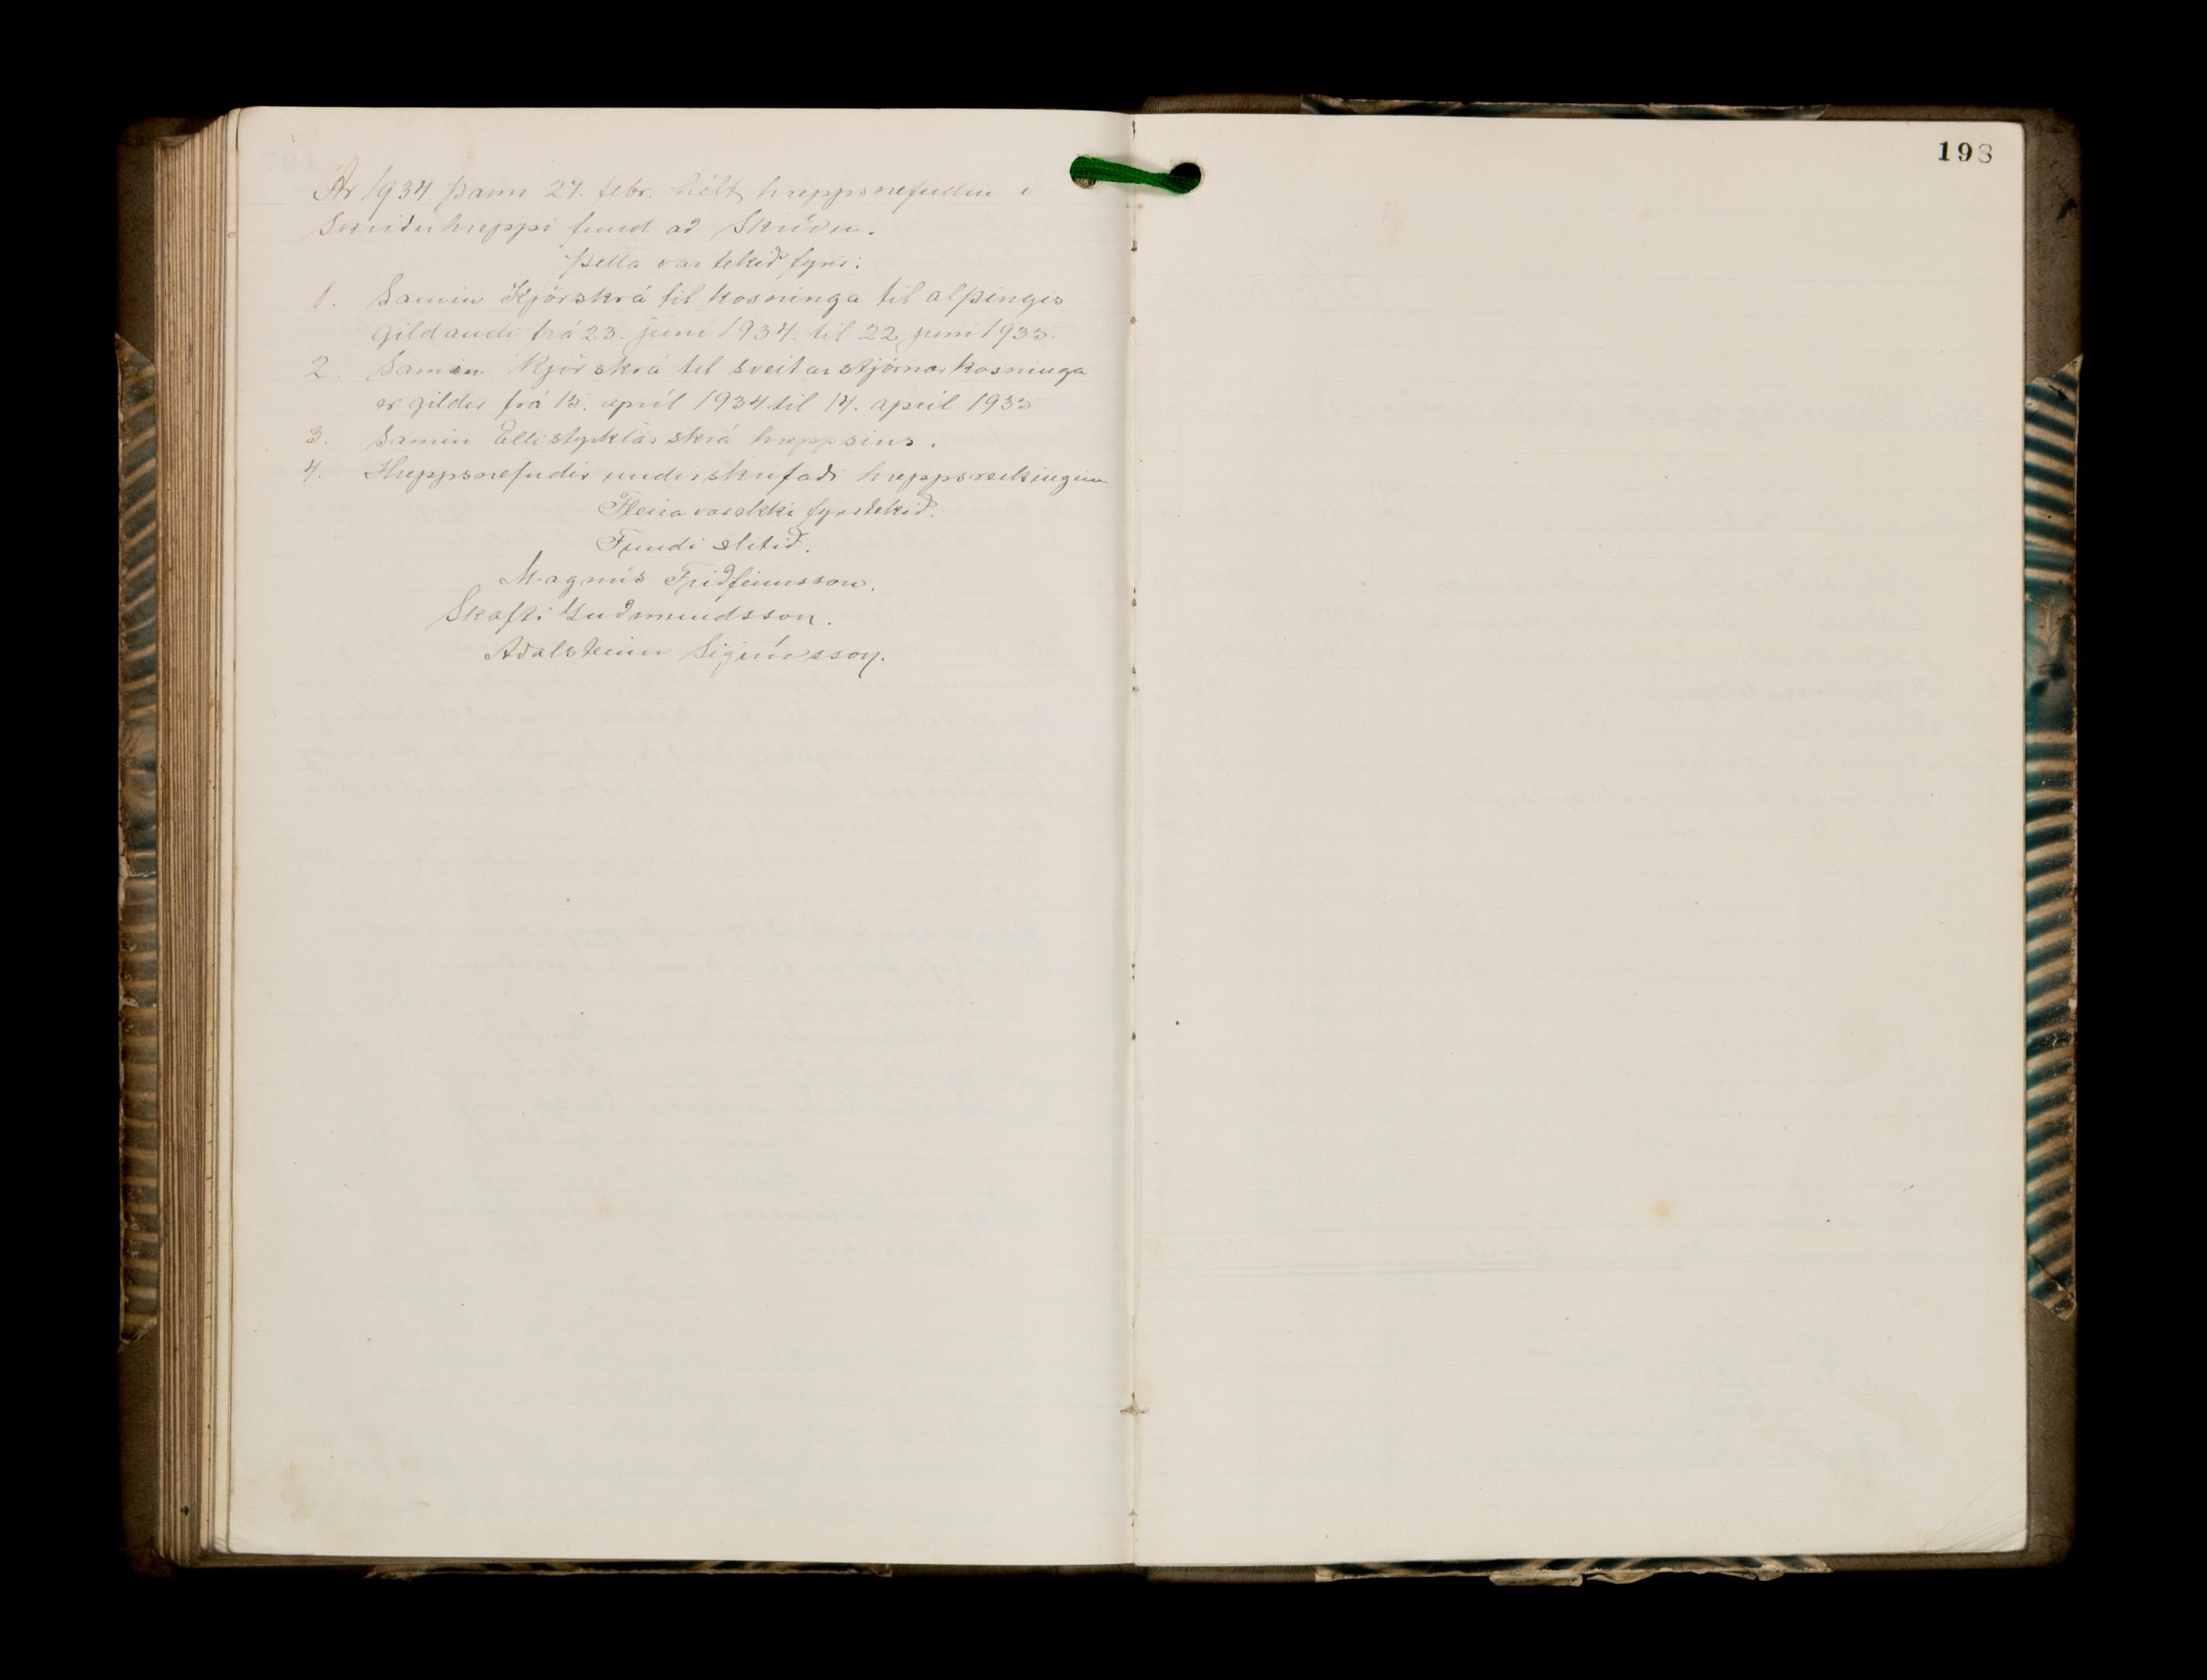 Ár 1934 þann 27. febr. hélt hreppsnefndin í
Skriðuhreppi fund að Skriðu.
Þetta var tekið fyrir:
1. Samin Kjörskrá til kosninga til alþingis
gildandi frá 23. júní 1934. til 22 júní 1935.
2. Samin Kjörskrá til sveitarstjórnarkosninga
er gildir frá 15. apríl 1934 til 14. apríl 1935
3. Samin Ellistyrktarskrá hreppsins.
4. Hreppsnefndin undirskrifaði hreppsreikinginn
Fleira var ekki fyrirtekið.
Fundi slitið.
Magnús Friðfinnsson.
Skafti Guðmundsson.
Aðalsteinn Sigurðsson.
198